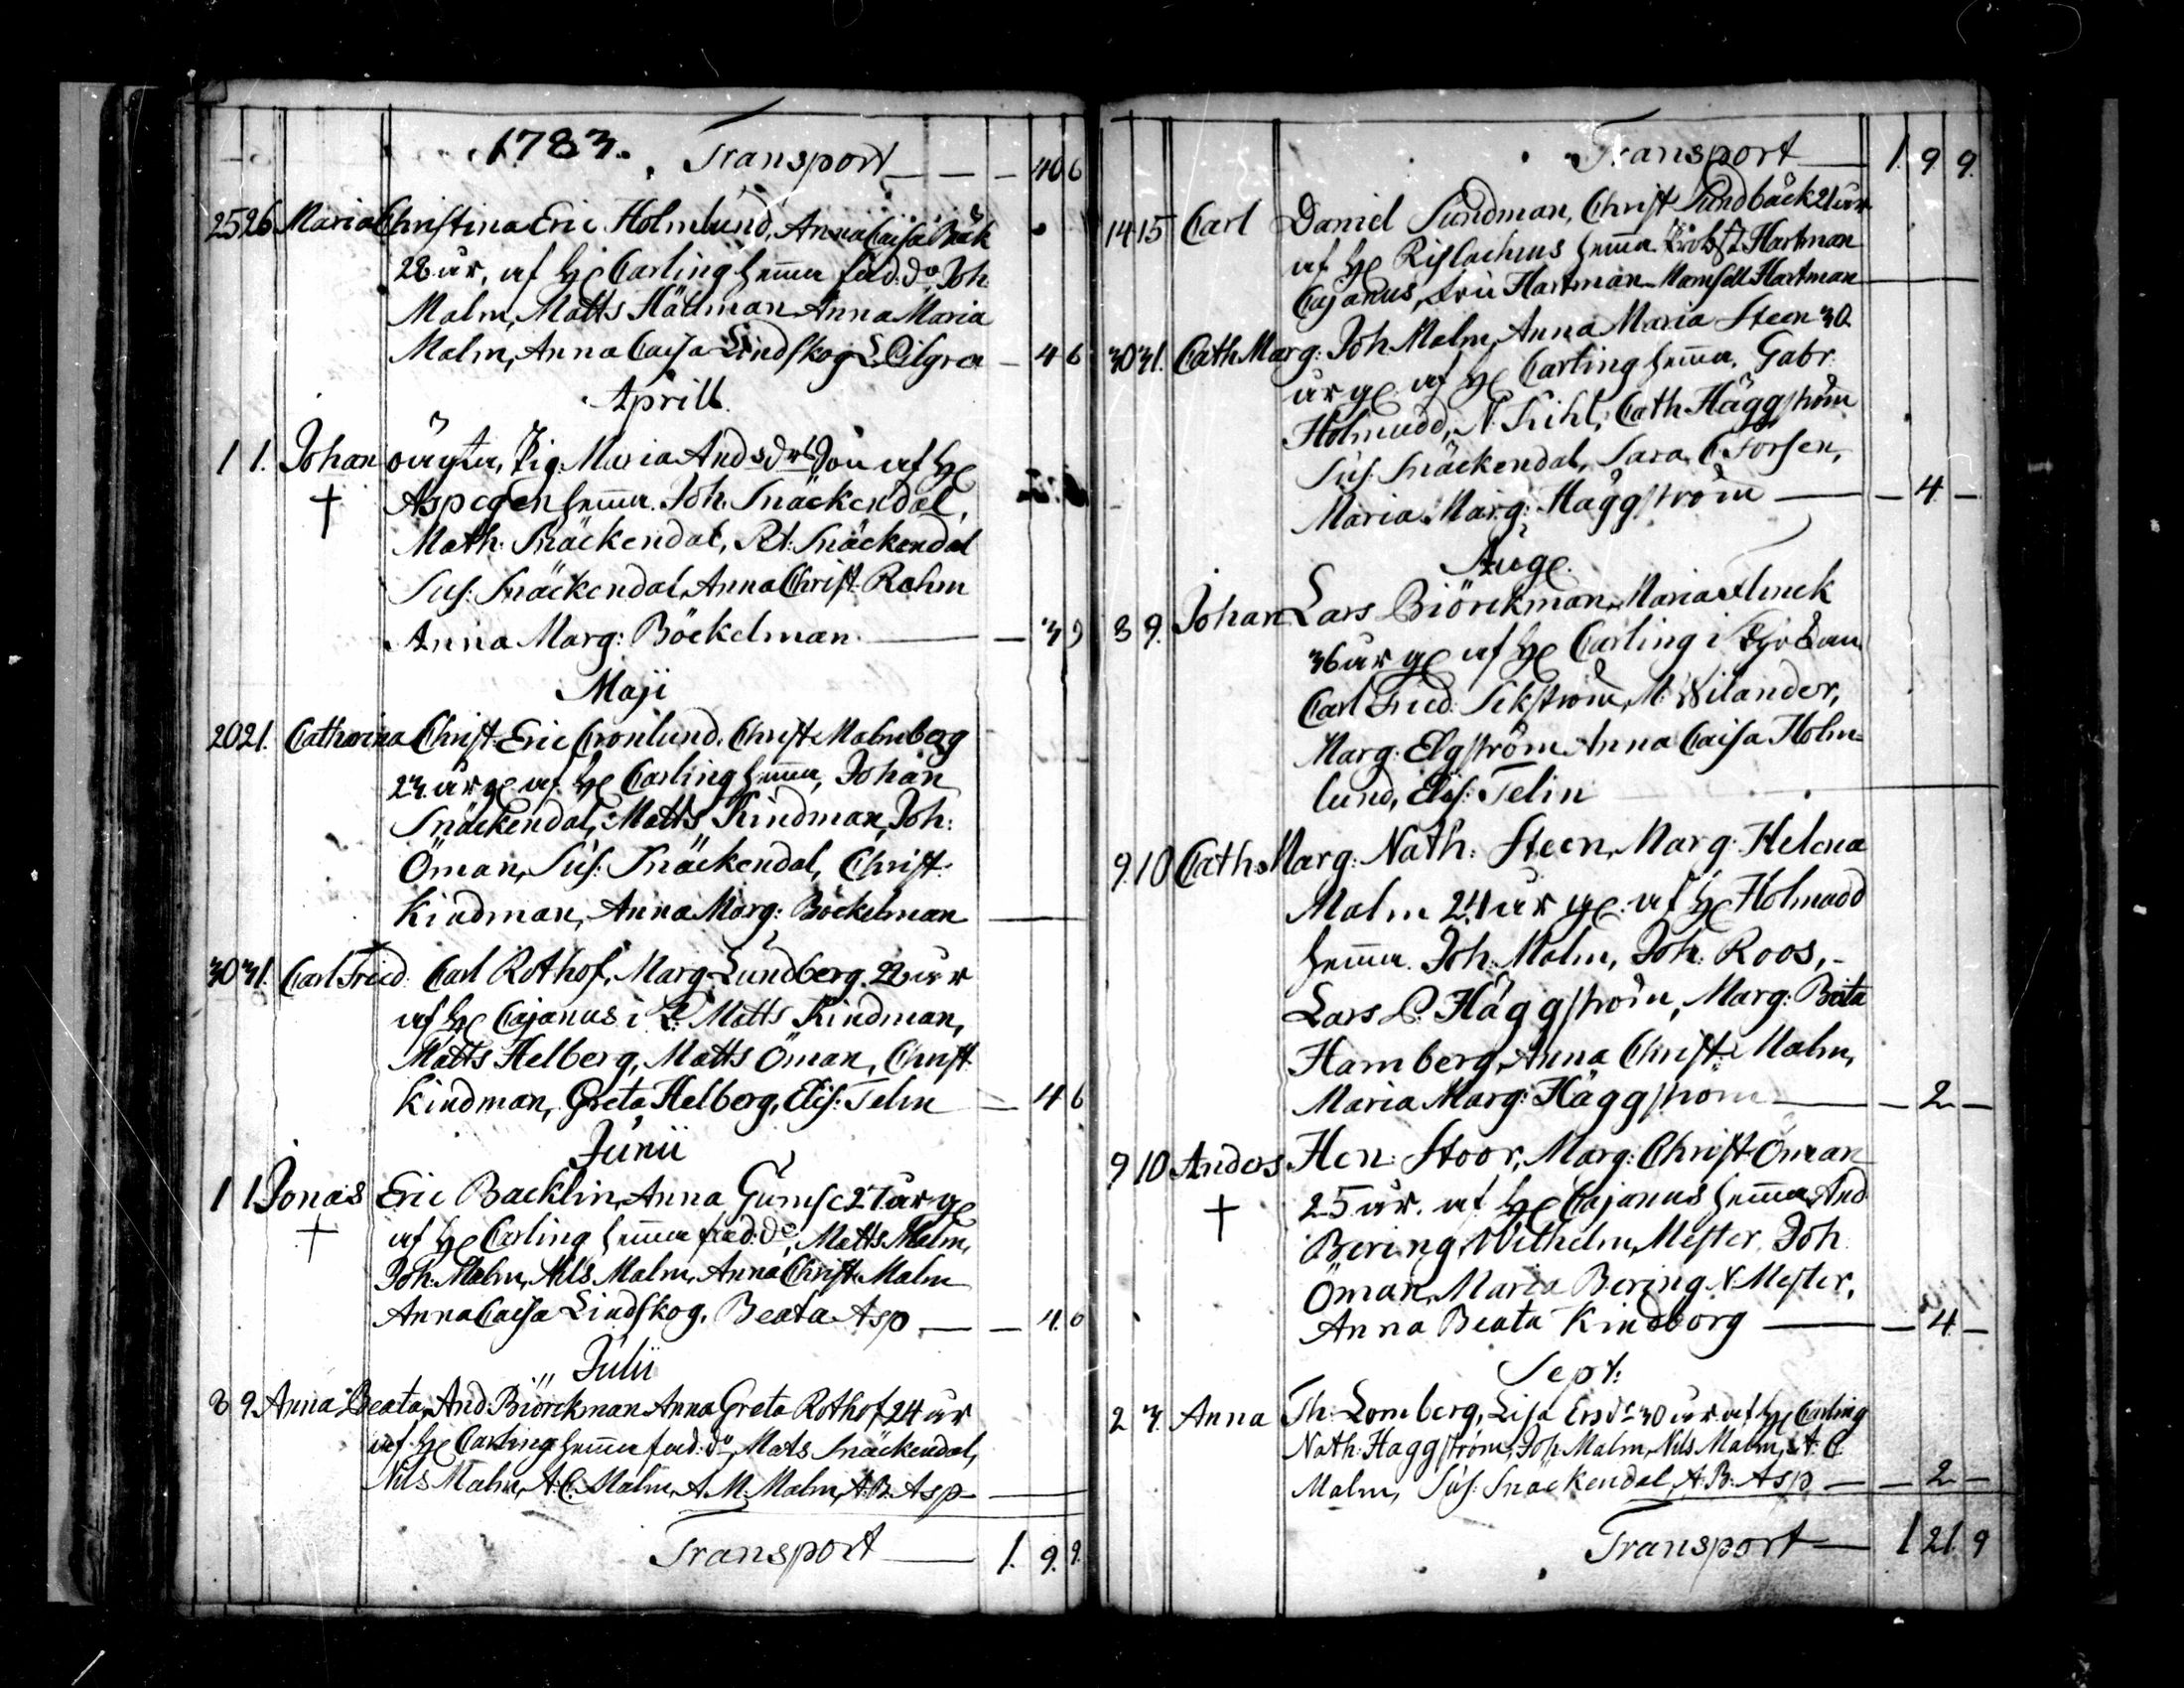 1783. Transport — — — 40 6
25 26 Maria Christina Eric Holmlund, Anna Caisa Bäck
28 år, af H Carling hemma fad: do Joh
Malm, Matts Hällman Anna Maria
Malm, Anna Caisa Lindskog L. Cilgren — 4 6
Aprill.
1 1. Johan oägta, Pig: Maria Andsdr Don af H
† Aspegren hemma. Joh. Snäckendal,
Math: Snäckendal, Pet: Snäckendal
Sus: Snäckendal, Anna Christ. Rahm
Anna Marg: Böckelman — — 3 9
Maji
20 21. Catharina Christ. Eric Cronlund, Christ. Malmberg
23 år g af H Carling hemma, Johan
Snäckendal, Matts Kindman, Joh:
Öman, Sus: Snäckendal, Christ.
Kindman, Anna Marg: Böckelman —
30 31. Carl Fried: Carl Rothof, Marg Lundberg. 22 år
af H Cajanus i L: Matts Kindman,
Matts Helberg, Matts Öman, Christ.
Kindman, Greta Helberg, Elis: Telin — 4 6
Junii
1 1 Jonas Eric Backlin, Anna Gumse 27 år g
† af H Carling hemma fad: do, Matts Malm,
Joh: Malm, Nils Malm, Anna Christ. Malm
Anna Caisa Lindskog, Beata Asp — — 4. 6
Julii
8 9. Anna Beata, And: Biörckman Anna Greta Rothof 24 år
af H Carling hemma fad: do, Mats Snäckendal,
Nils Malm, A. C. Malm, A. M: Malm, A: B. Asp —
Transport — 1. 9. 9.
Transport — 1. 9. 9.
14 15 Carl Daniel Sundman, Christ Sundbäck 21 år
af H Rislachius hemma. Probst Hartman
Cajanus, Fru Hartman Mamsell Hartman —
30 31. Cath Marg: Joh Malm, Anna Maria Steen 30
år g af H Carling hemma. Gabr.
Holmudd, N. Kihl, Cath. Häggström
Sus. Snäckendal, Sara C Forsen,
Maria Marg: Häggström — — 4 —
Aug.
8 9. Johan Lars Biörckman, Maria Flinck
36 år g af H Carling i
Carl Fried. Sikström, M: Wilander,
Marg: Elgström Anna Caisa Holm-
lund, Elis: Telin —
9. 10 Cath: Marg: Nath: Steen, Marg: Helena
Malm 24 år g: af H Holmudd
hemma. Joh: Malm, Joh: Roos, -
Lars L. Häggström, Marg: Beata
Hamberg, Anna Christ: Malm,
Maria Marg: Häggström — — 2 —
9 10 Anders Hen: Stoor, Marg: Christ Öman
† 25 år. af H Cajanus hemma And
Bering, Wilhelm Mester, Joh
Öman, Maria Bering N: Mester,
Anna Beata Kindborg — — 4 —
Sept:
2 3. Anna Th: Lomberg, Lisa Ersdr 30 år af H Carling
Nath: Häggström, Joh. Malm, Nils Malm, A: C
Malm, Sus: Snackendal, A: B: Asp — — 2 —
Transport — 1 21. 9